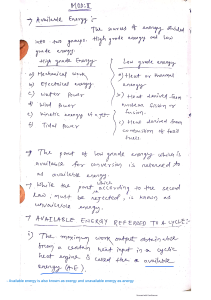 MOD:II
→ Available Energy :-
The sources of energy divided
into two groups. High grade energy and low
grade energy.
High grade Energy
a) Mechanical work
b) Electrical energy
c) Water Power
d) Wind Power
e) Kinetic energy of a jet
f) Tidal Power
Low grade energy
a) Heat or thermal
energy
b) Heat derived from
nuclear fission or
fusion.
c) Heat derived from
combustion of fossil
fuels
→ The part of low grade energy which is
available for conversion is referred to
as available energy.
→ While the part which according to the second
law, must be rejected, is known as
unavailable energy.
→ AVAILABLE ENERGY REFERRED TO A CYCLE:-
The maximum work output obtainable
from a certain heat input in a cyclic
heat engine is called the available
energy (A.E.).
Available energy is also known as exergy and unavailable energy as anergy